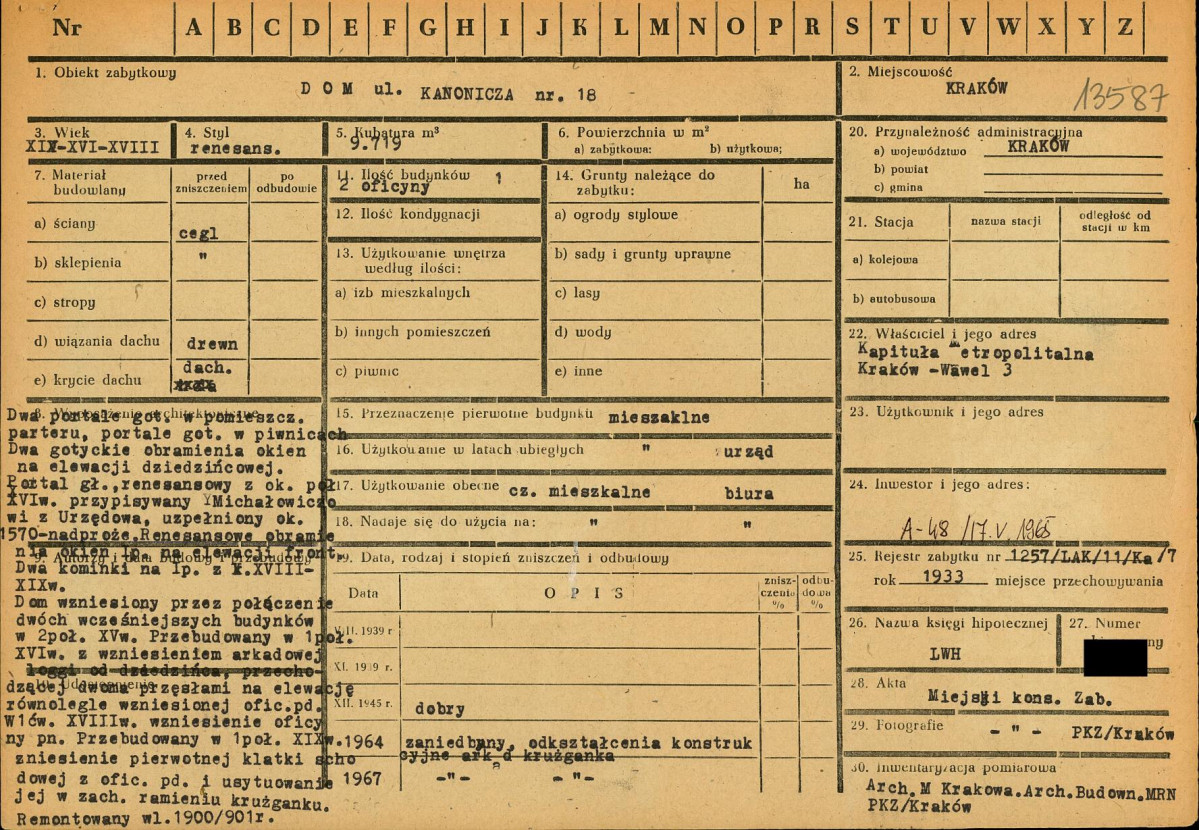 Nr A B C D E F G H I J K L M N O P R S T U V W X Y Z
1. Obiekt zabytkowy
D O M ul. KANONICZA nr. 18
2. Miejscowość
KRAKÓW
13587
3. Wiek
XIX-XVI-XVIII
4. Styl
renesans.
5. Kubatura m³
9.719
6. Powierzchnia w m²
a) zabytkowa: b) użytkowa;
20. Przynależność administracyjna
a) województwo KRAKÓW
b) powiat
c) gmina
7. Materiał budowlany
przed zniszczeniem
po odbudowie
a) ściany cegl
b) sklepienia "
c) stropy
d) wiązania dachu drewn
e) krycie dachu dach.
11. Ilość budynków 1
2 oficyny
12. Ilość kondygnacji
13. Użytkowanie wnętrza
według ilości:
a) izb mieszkalnych
b) innych pomieszczeń
c) piwnic
14. Grunty należące do
zabytku:
ha
a) ogrody stylowe
b) sady i grunty uprawne
c) lasy
d) wody
e) inne
21. Stacja
nazwa stacji
odległość od
stacji w km
a) kolejowa
b) autobusowa
22. Właściciel i jego adres
Kapituła Metropolitalna
Kraków -Wawel 3
Dwa portale got. w pomieszcz.
parteru, portale got. w piwnicach
Dwa gotyckie obramienia okien
na elewacji dziedzińcowej.
Portal gł.,renesansowy z ok. poł
XVIw. przypisywany Michałowiczo
wi z Urzędowa, uzpełniony ok.
1570-nadproże.Renesansowe obramie
nia okien Ip. na elewacji front.
9. Autorzy i data budowy i przebudowy
Dwa kominki na Ip. z k.XVIII-
XIXw.
Dom wzniesiony przez połączenie
dwóch wcześniejszych budynków
w 2poł. XVw. Przebudowany w 1poł.
XVIw. z wzniesieniem arkadowej
loggi od dziedzińca, przecho-
dzącej dwoma przęsłami na elewację
równolegle wzniesionej ofic.pd.
W1ćw. XVIIIw. wzniesienie oficy
ny pn. Przebudowany w 1poł. XIXw.
zniesienie pierwotnej klatki scho
dowej z ofic. pd. i usytuowanie
jej w zach. ramieniu krużganku.
Remontowany wl.1900/901r.
15. Przeznaczenie pierwotne budynku mieszaklne
16. Użytkowanie w latach ubiegłych " urząd
17. Użytkowanie obecne cz. mieszkalne biura
18. Nadaje się do użycia na: " "
19. Data, rodzaj i stopień zniszczeń i odbudowy
Data
O P I S
znisz-
czenia
%
odbu-
dowa
%
VIII. 1939 r
XI. 1939 r.
XII. 1945 r. dobry
1964 zaniedbany, odkształcenia konstruk
cyjne ark d krużganka
1967 -"- -"-
23. Użytkownik i jego adres
24. Inwestor i jego adres:
A-48 /17.V.1965
25. Rejestr zabytku nr 1257/LAK/11/Ka/7
rok 1933 miejsce przechowywania
26. Nazwa księgi hipotecznej
LWH
27. Numer
28. Akta
Miejski kons. Zab.
29. Fotografie - " - PKZ/Kraków
30. Inwentaryzacja pomiarowa
Arch.M Krakowa.Arch.Budown.MRN
PKZ/Kraków